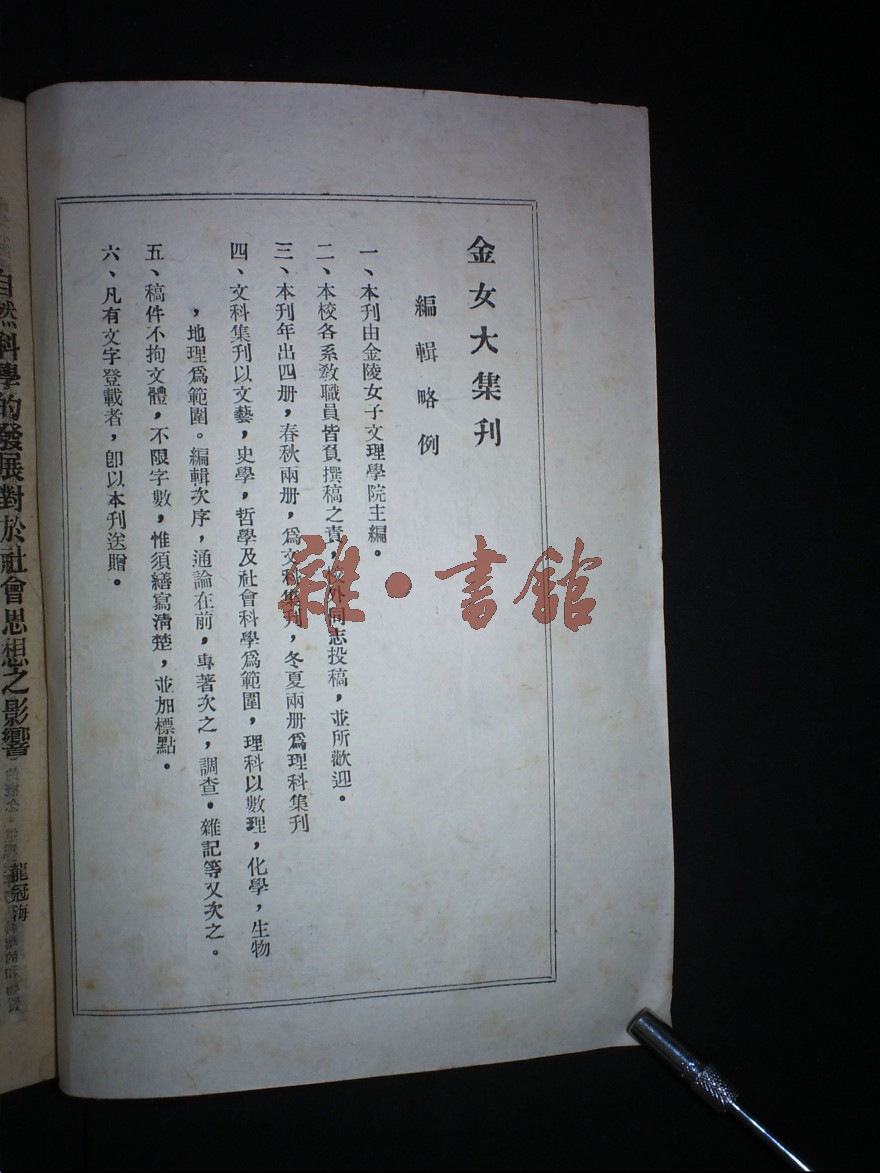 金女大集刊
編輯略例
一、本刊由金陵女子文理學院主編。
二、本校各系教職員皆負撰稿之責，校外同志投稿，並所歡迎。
三、本刊年出四册，春秋兩册，爲文科集刊，冬夏兩册爲理科集刊
四、文科集刊以文藝，史學，哲學及社會科學爲範圍，理科以數理，化學，生物
，地理爲範圍。編輯次序，通論在前，專著次之，調查。雜記等又次之。
五、稿件不拘文體，不限字數，惟須繕寫淸楚，並加標點。
六、凡有文字登載者，卽以本刊送贈。
自然科學的發展對於社會思想之影響
龍冠海
雜·書館